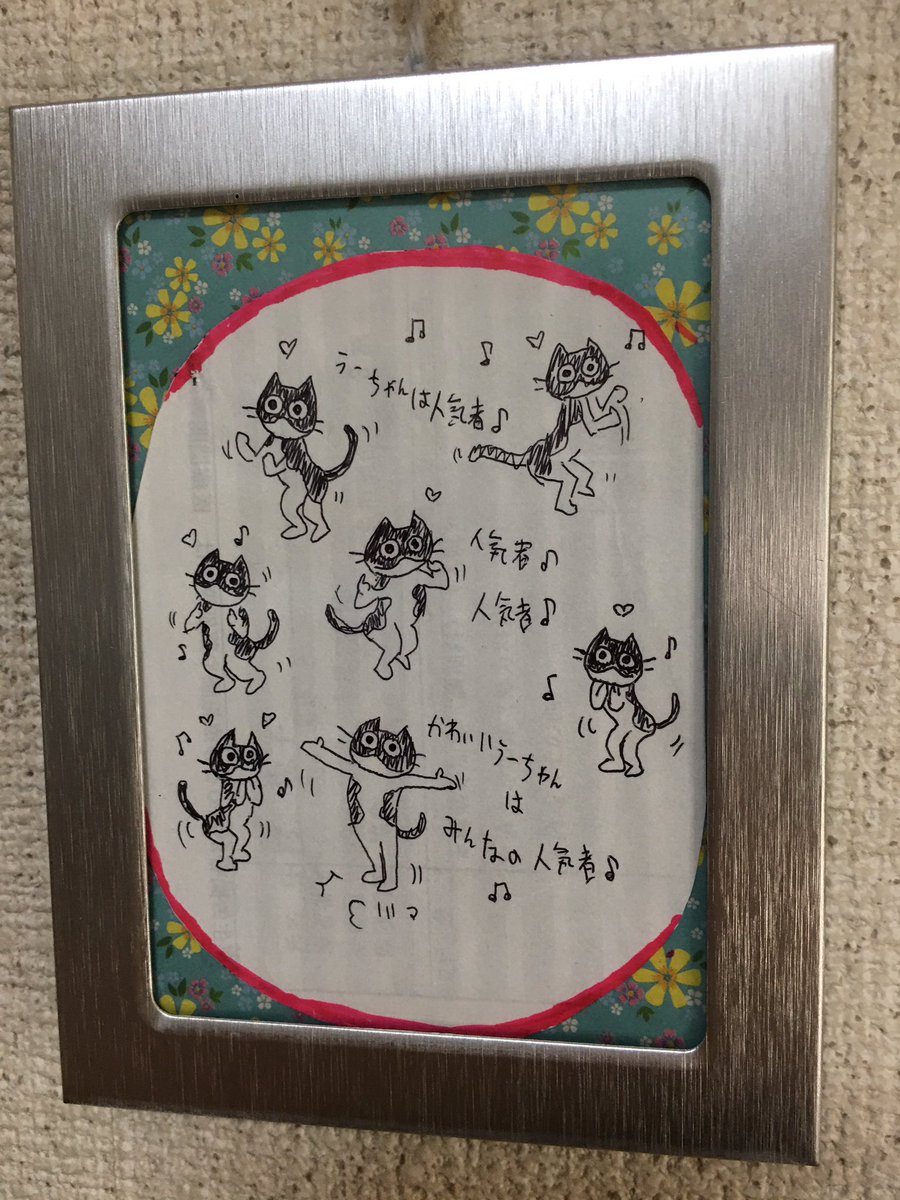 うーちゃんは人気者♪
人気者♪
人気者♪
かわいいうーちゃん
は
みんなの人気者♪